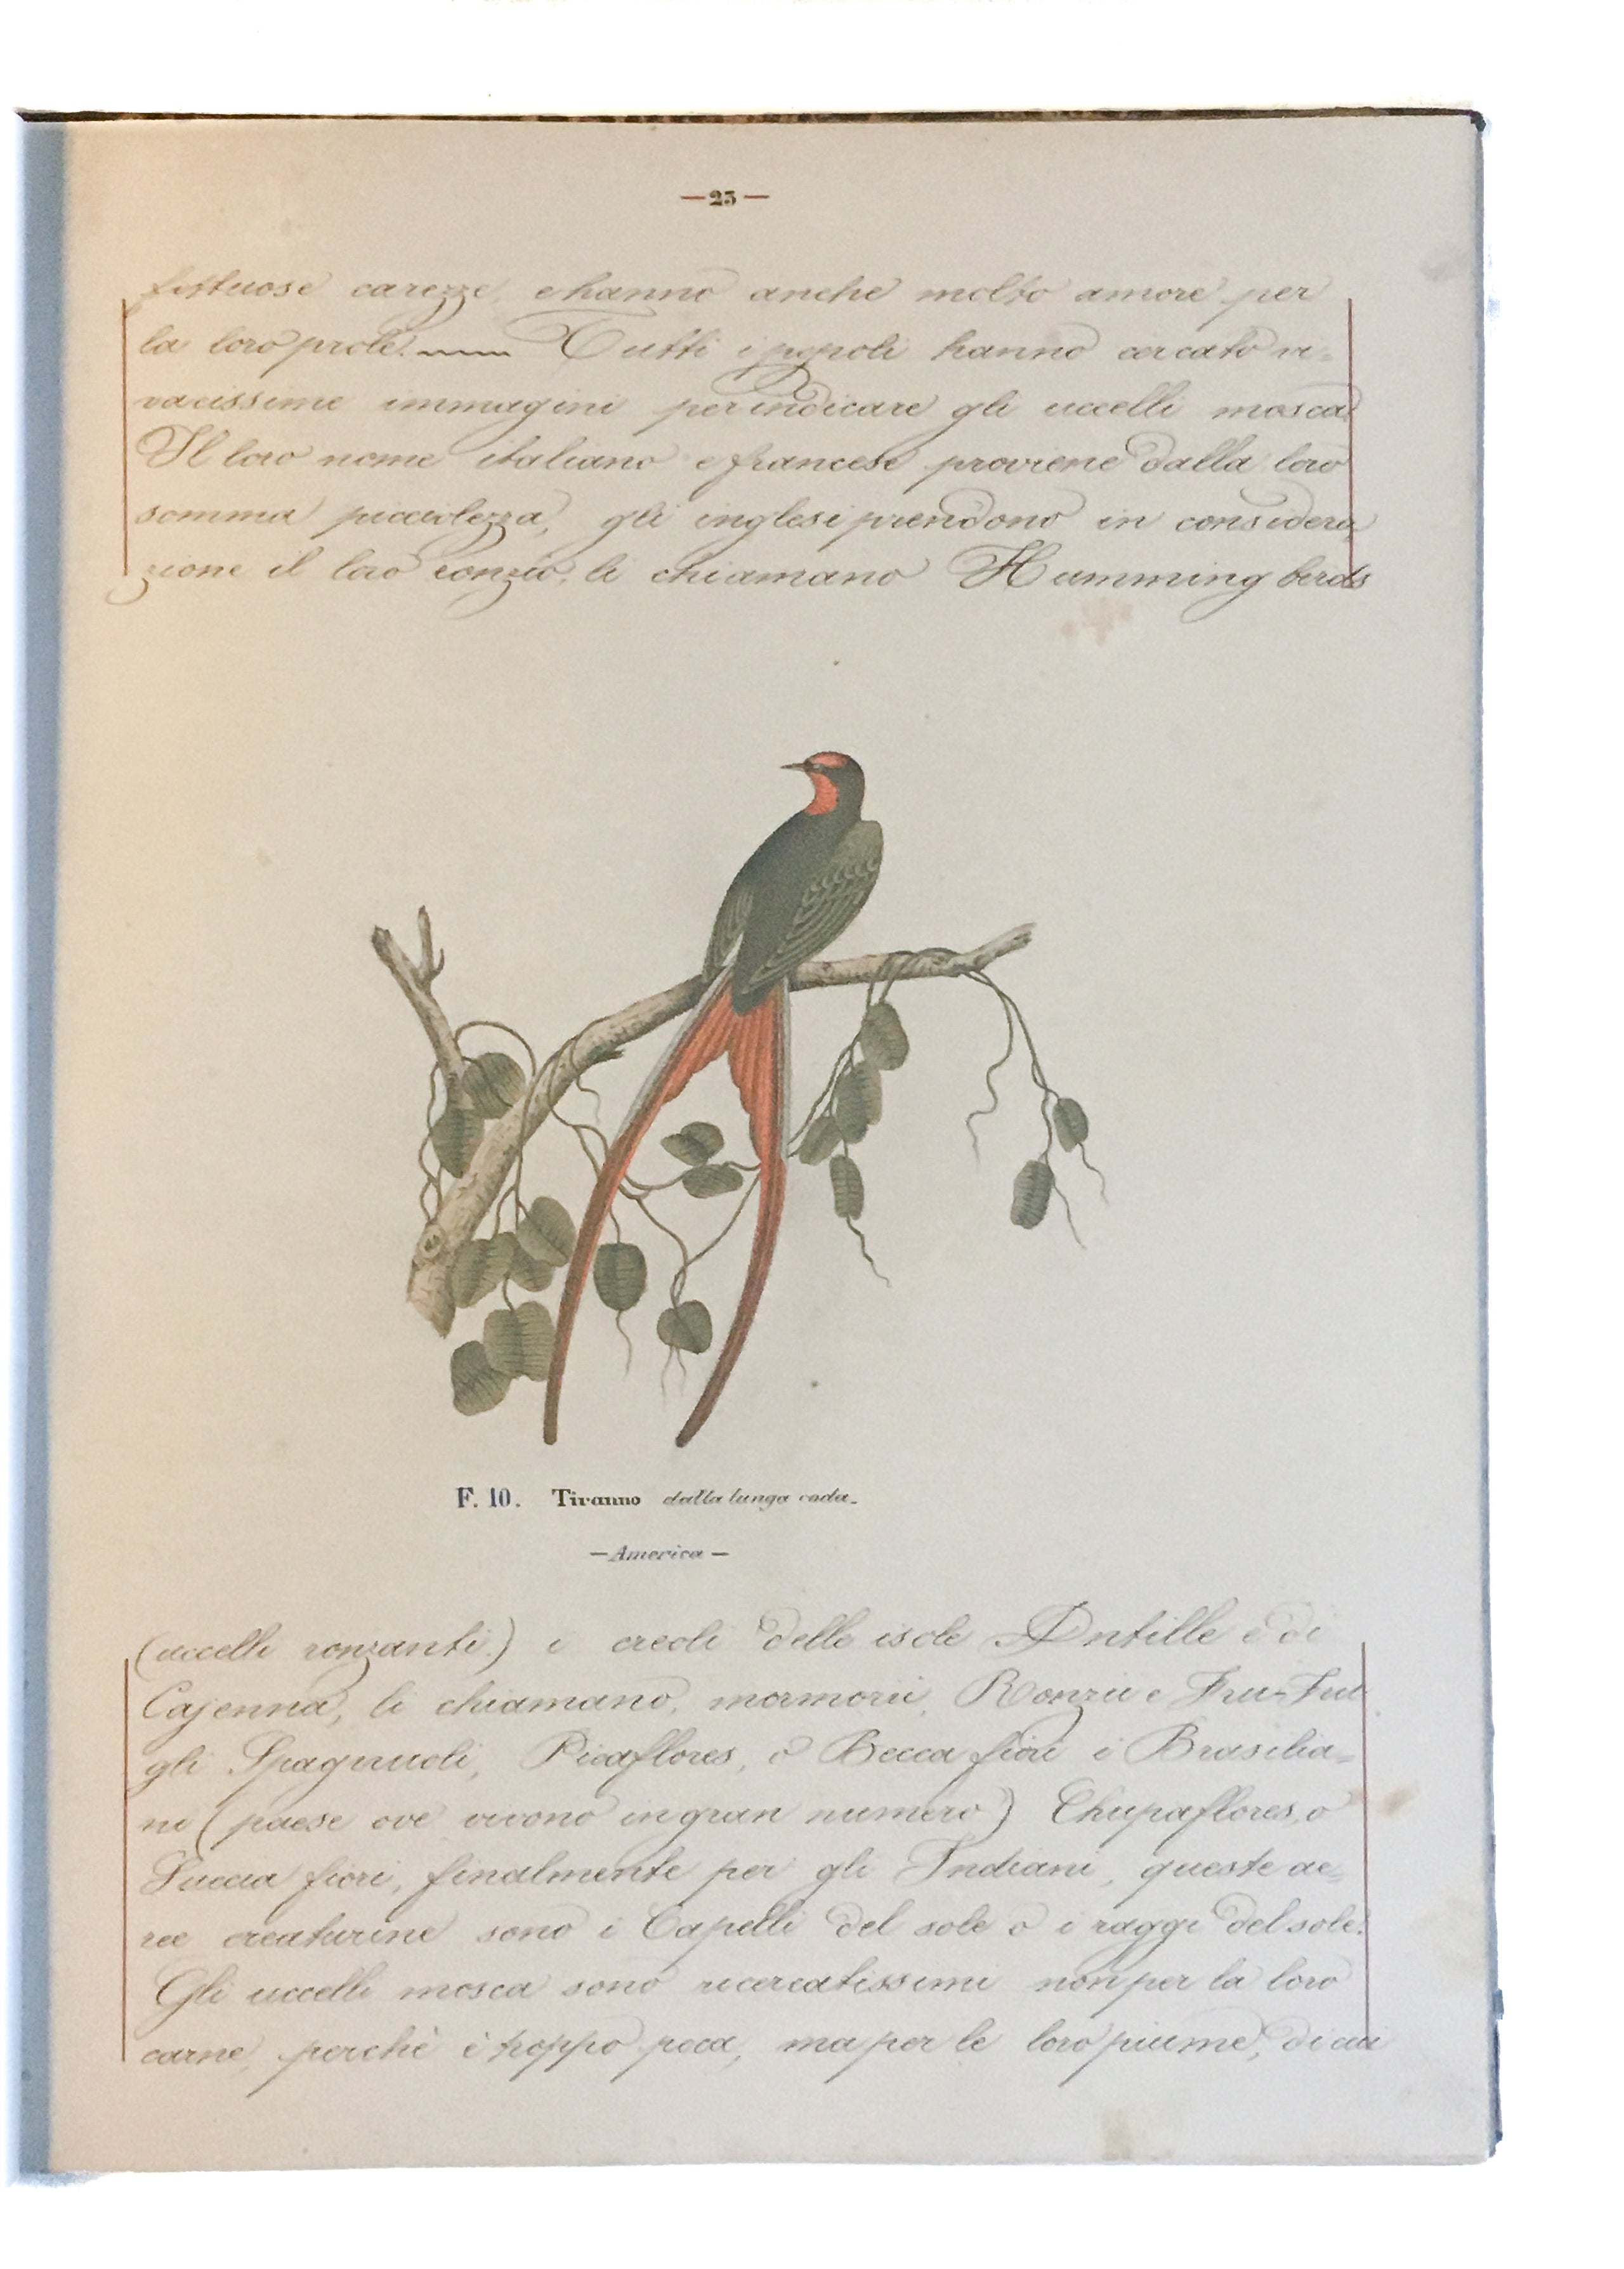 — 25 —
fettuose carezze, e hanno anche molto amore per
la loro prole. Tutti i popoli hanno cercato vi-
vacissime immagini per indicare gli uccelli mosca.
Il loro nome italiano e francese proviene dalla loro
somma piccolezza, gli inglesi prendono in considera
zione il loro ronzio, li chiamano Humming birds
F. 10. Tiranno dalla lunga coda.
— America —
(uccelli ronzanti.) i creoli delle isole Antille e di
Cajenna, li chiamano, mormorii, Ronzii e Fru-Fru
gli Spagnuoli, Picaflores, o Becca fiori i Brasilia-
ni (paese ove vivono in gran numero) Chupaflores, o
Succia fiori, finalmente per gli Indiani, queste ae-
ree creaturine sono i Capelli del sole o i raggi del sole.
Gli uccelli mosca sono ricercatissimi non per la loro
carne, perchè è troppo poca, ma per le loro piume, di cui